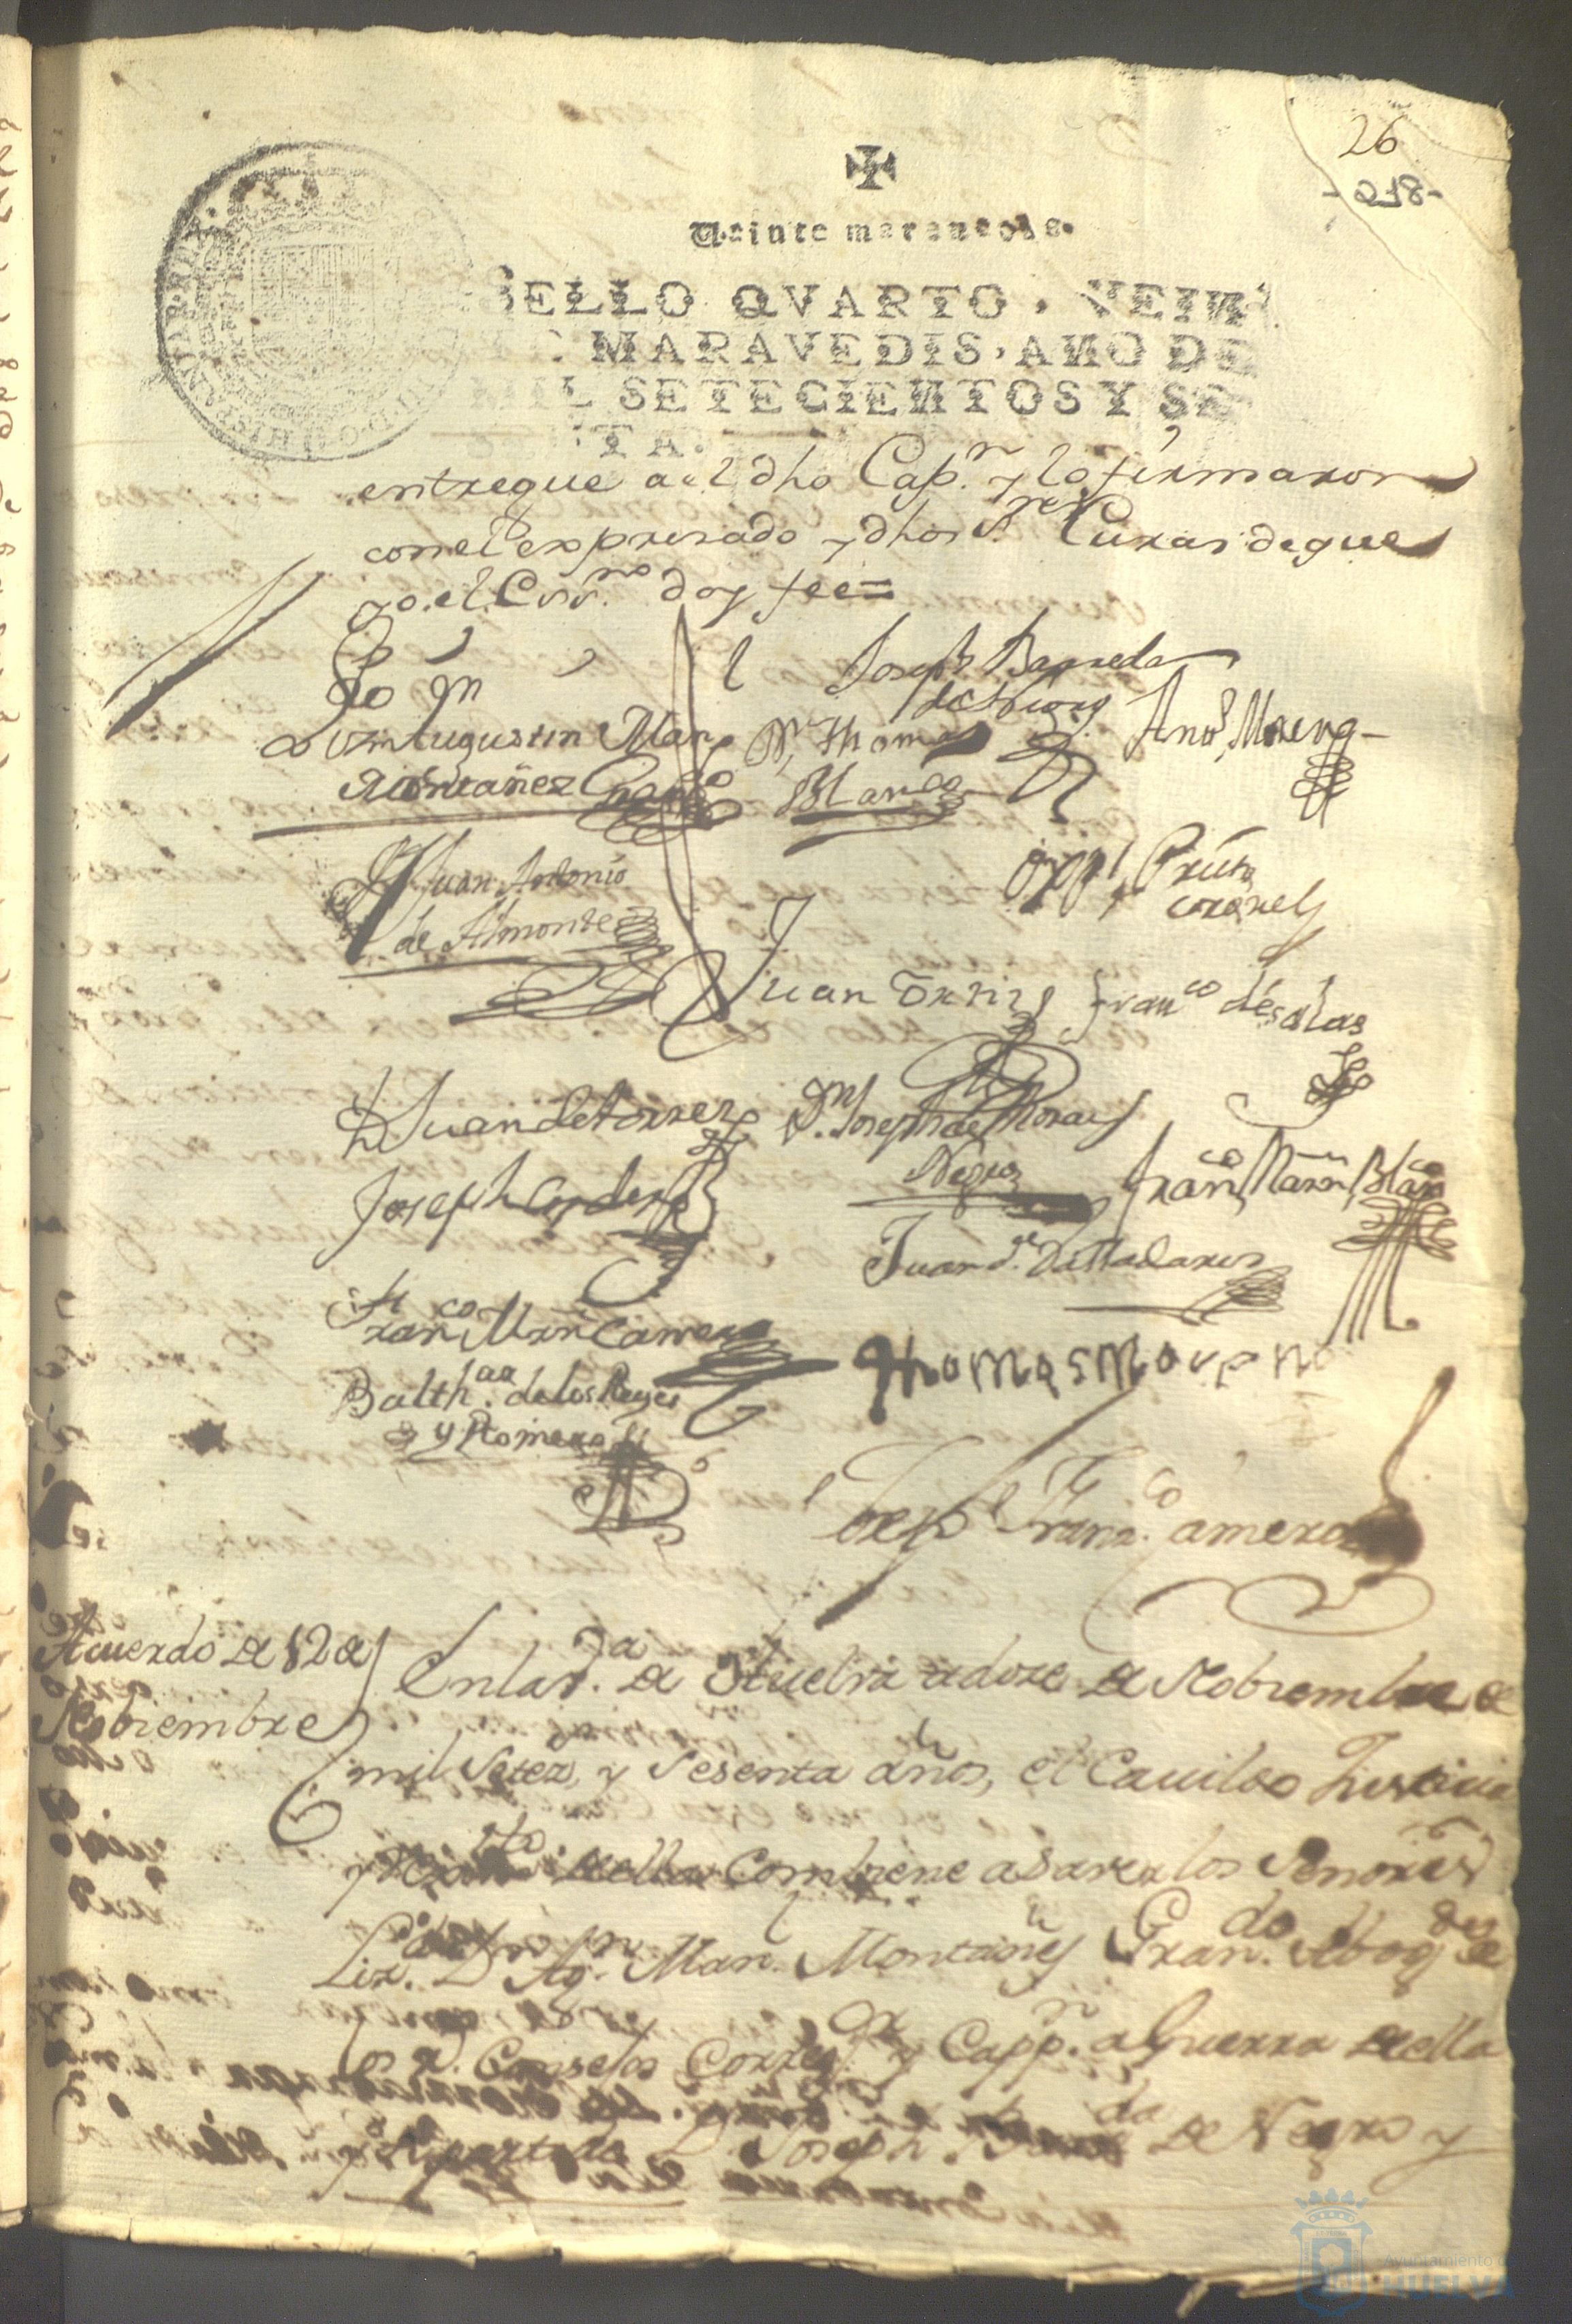 26
-218-
Veinte maravedis.
SELLO QVARTO, VEIN
MARAVEDIS, AÑO DE
MIL SETECIENTOS Y SE
TA.
entregue a el dho Capn. y lo firmaron
con el expresado y dhos Sres. Curas de que
yo el Essno. doy fee=
Joseph Barreda
de Negro
Lizdo. Dn. Augustin Man
Dn. Thomas
Anto. Moreno
Montañez Grando
Blanco
Juan Antonio
de Almonte
coronel
Juan Ortiz
Franco de salas
D Juan de torres
Dn. Joseph de Moras
Negro
Joseph Cordero
Franco Marn. Blanco
Juan de Valladares
Franco Mrn Camero
Thomas Moreno
Balthar. de los Reyes
y Romero
Joseph Franco. Camero
Acuerdo de 12 de
Nobiembre
En la Va. de Huelva a doze de Nobiembre de
mil Setezs. y Sesenta años, el Cauildo Justicia
y Regimto de ella Combiene a saver los Señores
Lizdo. Dn. Agn. Man. Montañes Grando. Abogdo de
los Rs. Consejos Corregor. y Cappn. a Guerra de ella
D Joseph Barda de Negro y
Ayuntamiento de
HUELVA